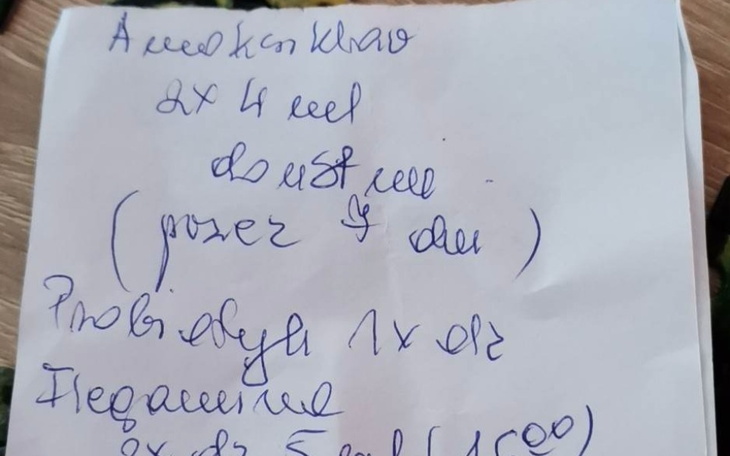 Amoksiklav
2x 4 ml
doustnie
(przez 7 dni)
Probiotyk 1x dz
Flegamina
2x dz 5 ml (1500)